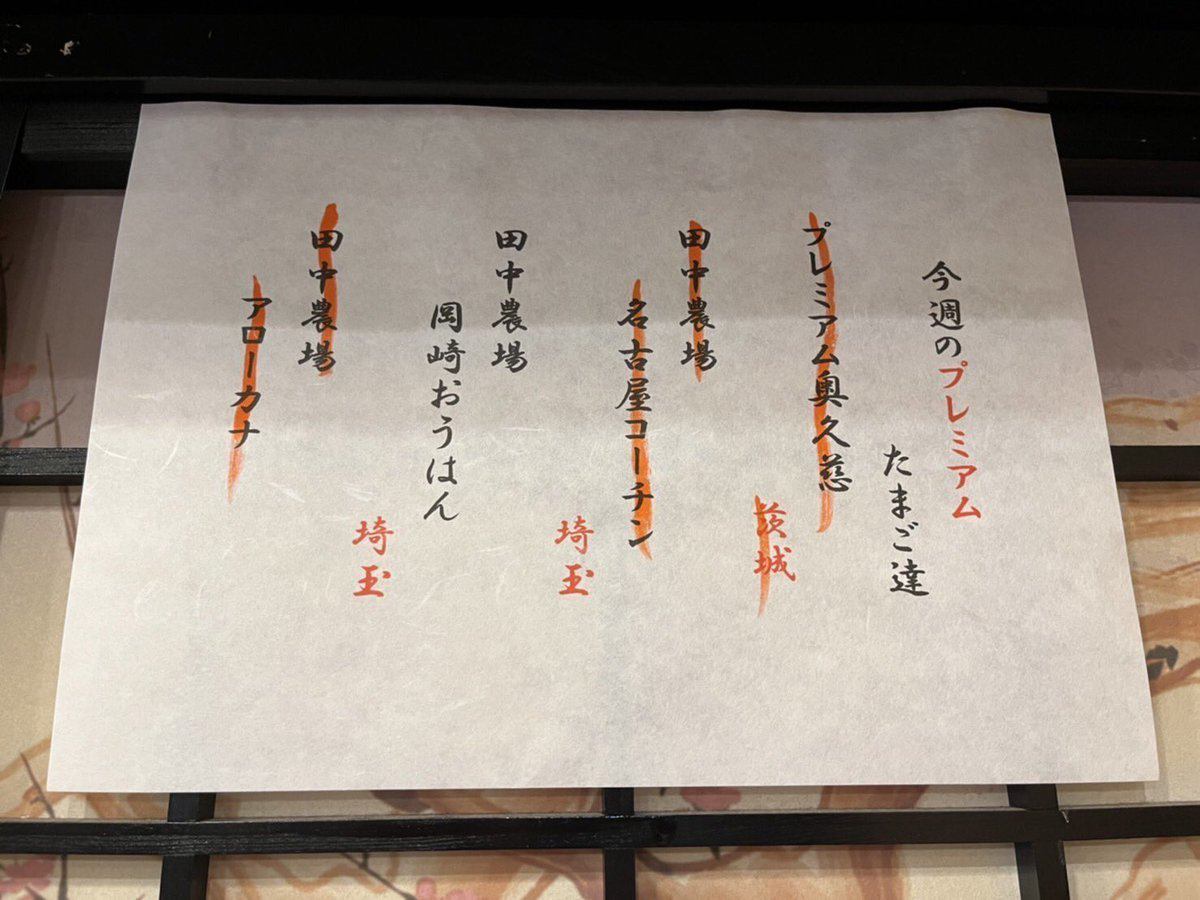 今週のプレミアム
たまご達
プレミアム奥久慈
茨城
田中農場
名古屋コーチン
埼玉
田中農場
岡崎おうはん
埼玉
田中農場
アローカナ